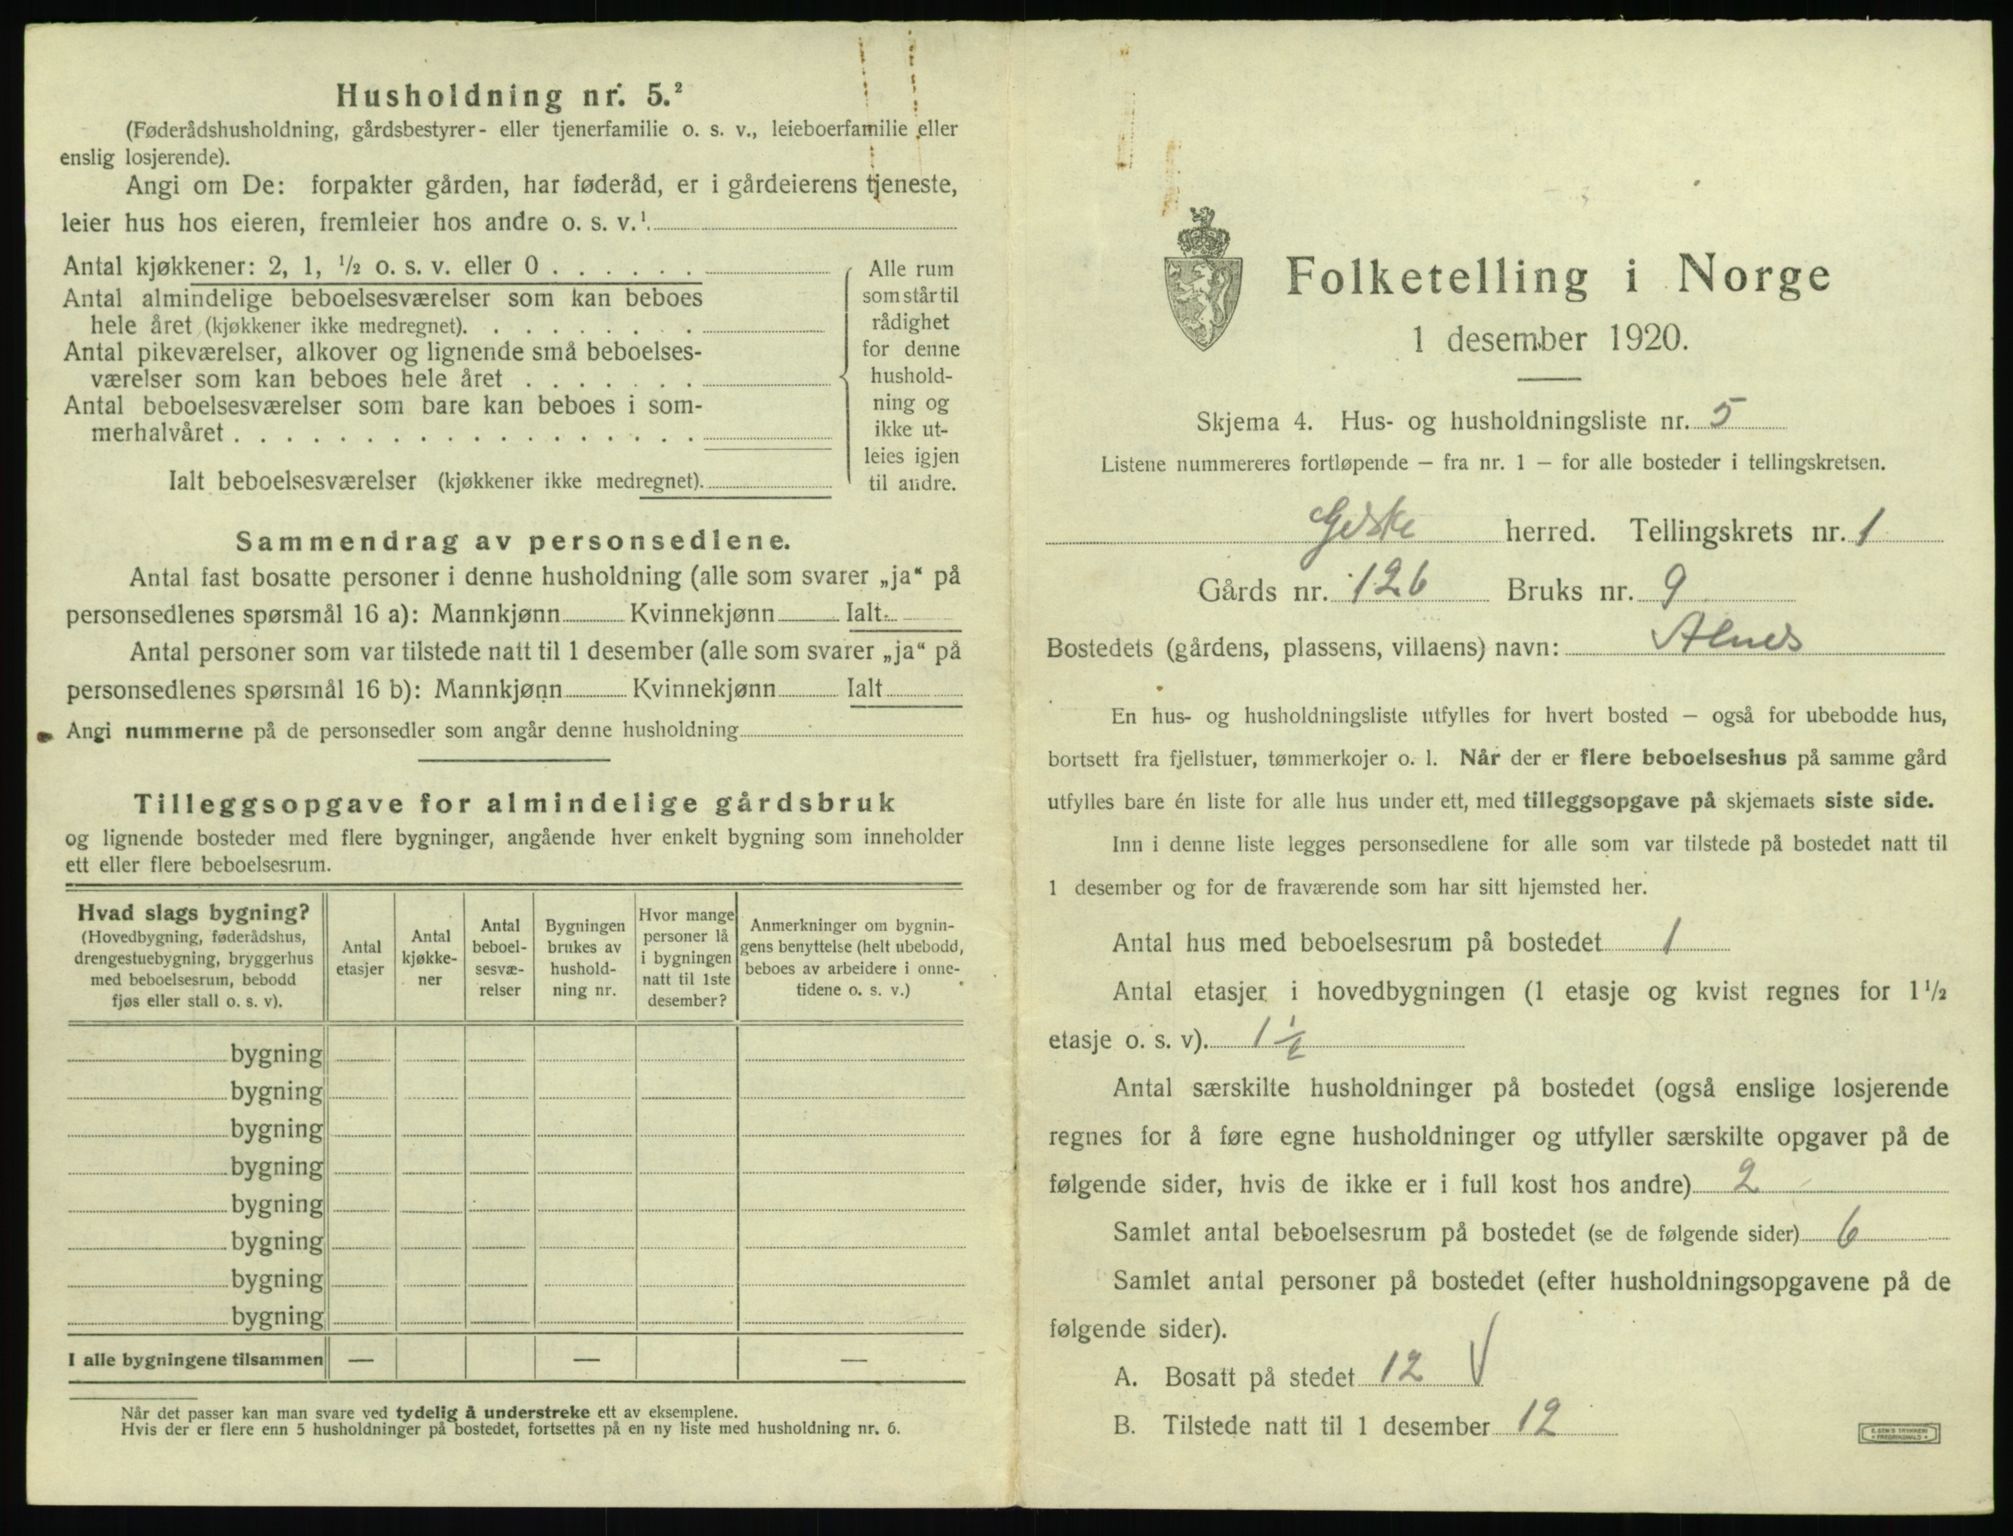 Husholdning nr. 5.²
(Føderådshusholdning, gårdsbestyrer- eller tjenerfamilie o. s. v., leieboerfamilie eller
enslig losjerende).
Angi om De: forpakter gården, har føderåd, er i gårdeierens tjeneste,
leier hus hos eieren, fremleier hos andre o. s. v.¹
Antal kjøkkener: 2, 1, ½ o. s. v. eller 0 . . . . . .
Antal almindelige beboelsesværelser som kan beboes
hele året (kjøkkener ikke medregnet). . . . . . . . .
Antal pikeværelser, alkover og lignende små beboelses-
værelser som kan beboes hele året . . . . . . .
Antal beboelsesværelser som bare kan beboes i som-
merhalvåret . . . . . . . . . . . . . . . . . .
Ialt beboelsesværelser (kjøkkener ikke medregnet).
Alle rum
som står til
rådighet
for denne
hushold-
ning og
ikke ut-
leies igjen
til andre.
Sammendrag av personsedlene.
Antal fast bosatte personer i denne husholdning (alle som svarer „ja“ på
personsedlenes spørsmål 16 a): Mannkjønn Kvinnekjønn Ialt
Antal personer som var tilstede natt til 1 desember (alle som svarer „ja“ på
personsedlenes spørsmål 16 b): Mannkjønn Kvinnekjønn Ialt
Angi nummerne på de personsedler som angår denne husholdning
Tilleggsopgave for almindelige gårdsbruk
og lignende bosteder med flere bygninger, angående hver enkelt bygning som inneholder
ett eller flere beboelsesrum.
Hvad slags bygning?
(Hovedbygning, føderådshus,
drengestuebygning, bryggerhus
med beboelsesrum, bebodd
fjøs eller stall o. s. v).
Antal
etasjer
Antal
kjøkke-
ner
Antal
beboel-
sesvæ-
relser
Bygningen
brukes av
hushold-
ning nr.
Hvor mange
personer lå
i bygningen
natt til 1ste
desember?
Anmerkninger om bygnin-
gens benyttelse (helt ubebodd,
beboes av arbeidere i onne-
tidene o. s. v.)
bygning
bygning
bygning
bygning
bygning
bygning
bygning
bygning
I alle bygningene tilsammen — — —
Når det passer kan man svare ved tydelig å understreke ett av eksemplene.
Hvis der er flere enn 5 husholdninger på bostedet, fortsettes på en ny liste med husholdning nr. 6.
Folketelling i Norge
1 desember 1920.
Skjema 4. Hus- og husholdningsliste nr. 5
Listene nummereres fortløpende – fra nr. 1 – for alle bosteder i tellingskretsen.
Giske herred. Tellingskrets nr. 1
Gårds nr. 126 Bruks nr. 9
Bostedets (gårdens, plassens, villaens) navn: Alnes
En hus- og husholdningsliste utfylles for hvert bosted – også for ubebodde hus,
bortsett fra fjellstuer, tømmerkojer o. l. Når der er flere beboelseshus på samme gård
utfylles bare én liste for alle hus under ett, med tilleggsopgave på skjemaets siste side.
Inn i denne liste legges personsedlene for alle som var tilstede på bostedet natt til
1 desember og for de fraværende som har sitt hjemsted her.
Antal hus med beboelsesrum på bostedet 1
Antal etasjer i hovedbygningen (1 etasje og kvist regnes for 1 ½
etasje o. s. v). 1 ½
Antal særskilte husholdninger på bostedet (også enslige losjerende
regnes for å føre egne husholdninger og utfyller særskilte opgaver på de
følgende sider, hvis de ikke er i full kost hos andre) 2
Samlet antal beboelsesrum på bostedet (se de følgende sider) 6
Samlet antal personer på bostedet (efter husholdningsopgavene på de
følgende sider).
A. Bosatt på stedet 12 V
B. Tilstede natt til 1 desember 12